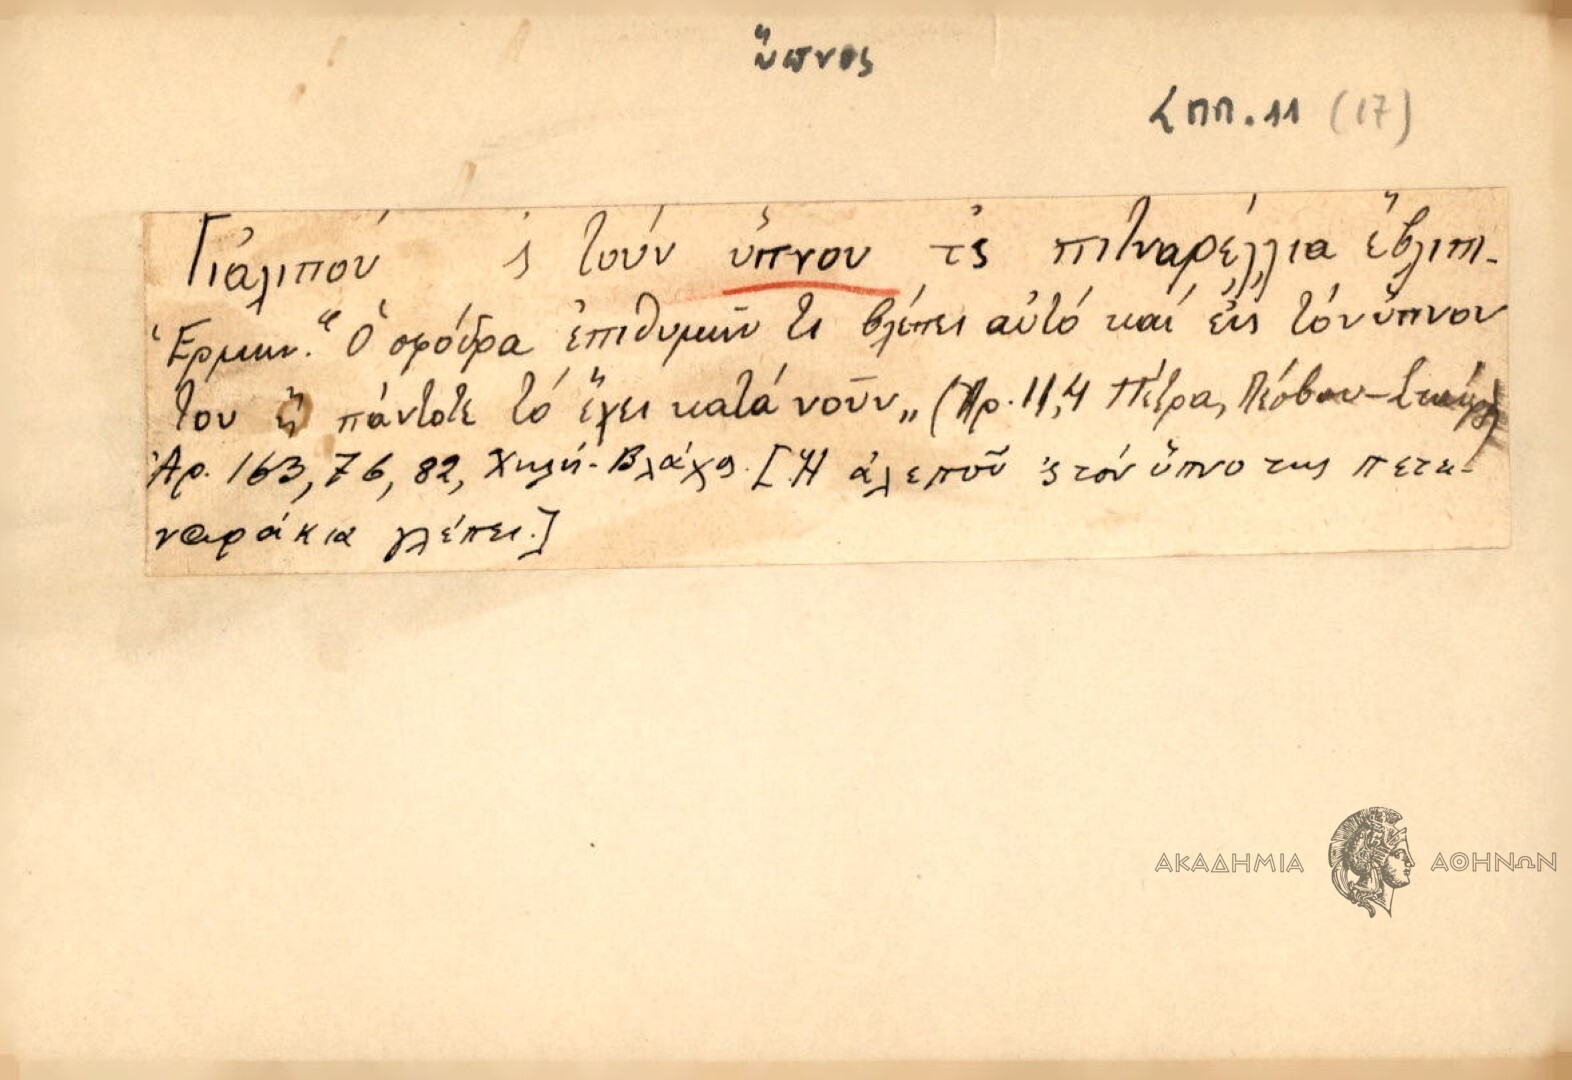 ὕπνος
ΛΠΠ. 11 (17)
Γιἀλιπού ς τούν ὕπνου τς πιτναρέλλια ἔβλιπι.
Ἑρμην. "Ὁ σφόδρα ἐπιθυμῶν τι βλέπει αὐτό καί εἰς τόν ὕπνον
του ἤ πάντοτε τό ἔχει κατά νοῦν„ (Ἀρ. 11,4 Πέτρα, Λέσβου-
Ἀρ. 163, 76, 82, Χιλή-Βλάχος. [Ἡ ἀλεποῦ 'ς τόν ὕπνο της πετει-
ναράκια γλέπει.]
ΑΚΑΔΗΜΙΑ ΑΘΗΝΩΝ